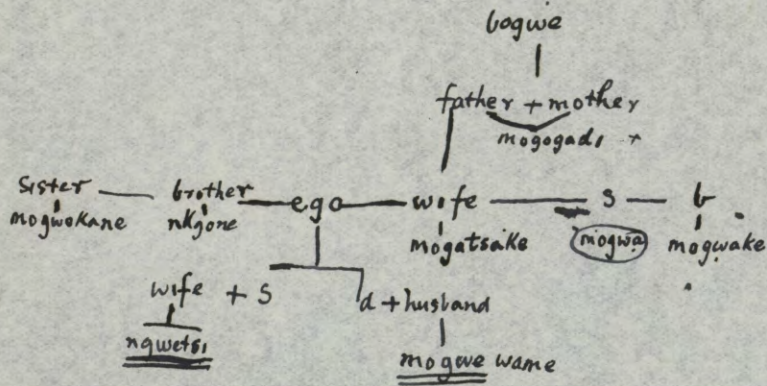 bogwe
father + mother
mogogadi +
sister brother ego wife s b
mogwokane nkgone mogatsake mogwa mogwake
wife + s d + husband
ngwetsi mogwe wame